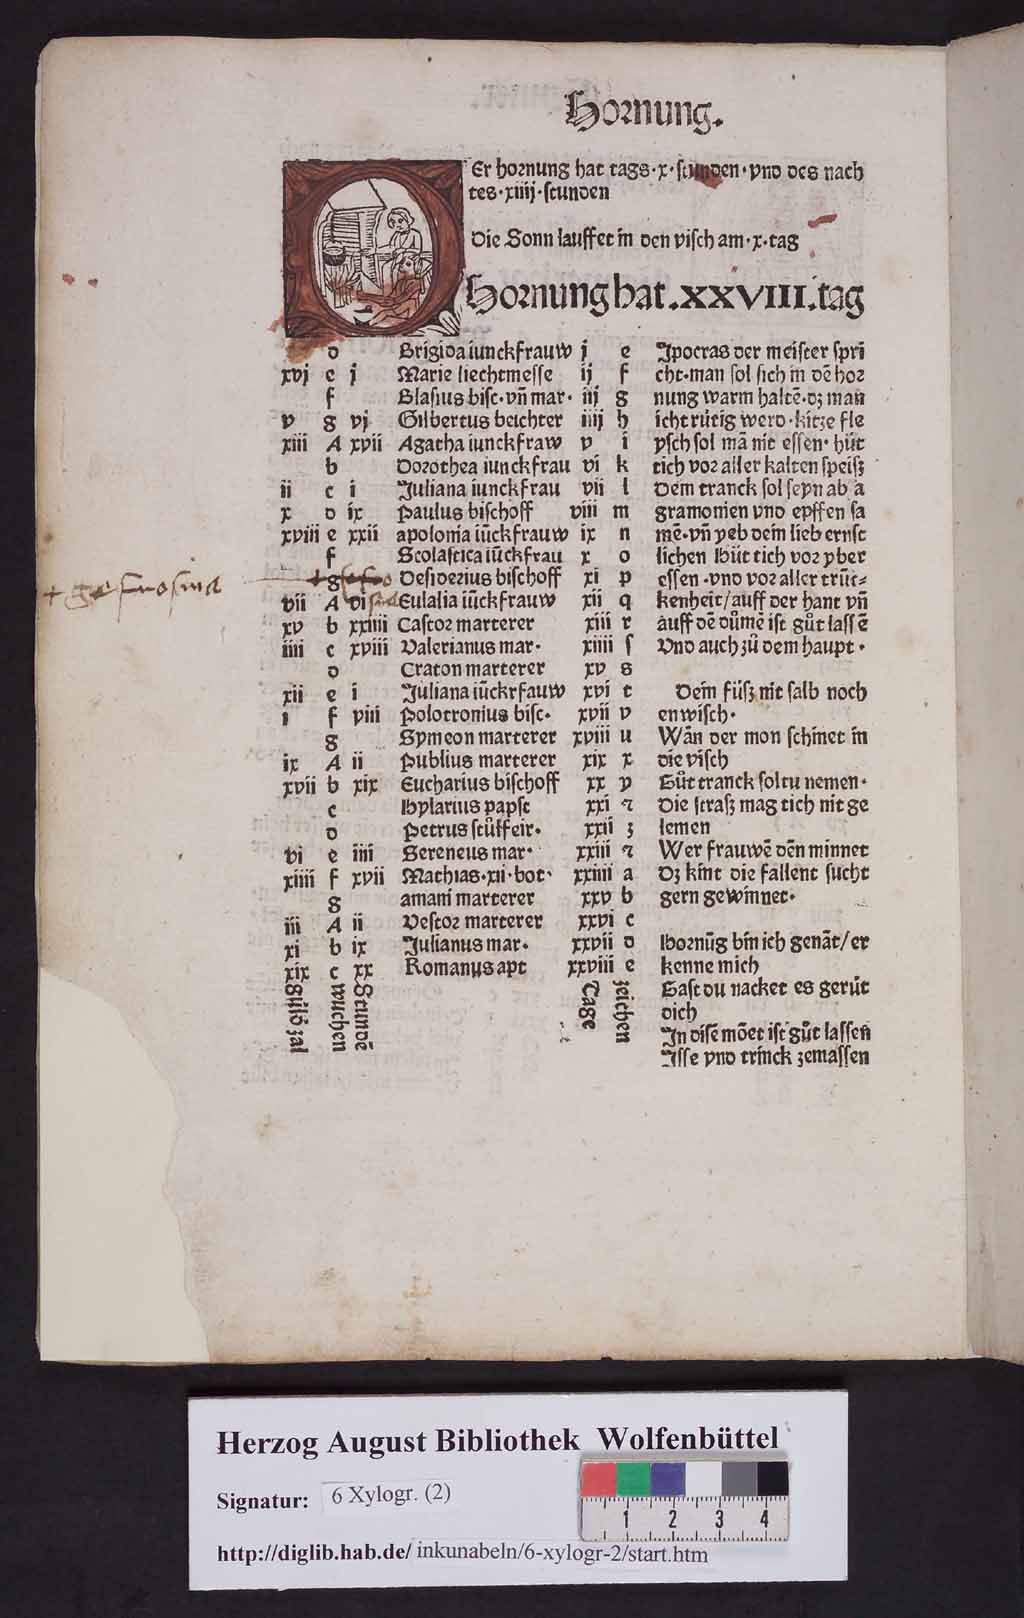 Hornung.
Er hornung hat tags·x·stunden·vnd des nach
tes·xiiij·stunden
Die Sonn lauffet in den visch am·x·tag
Hornung hat.XXVIII.tag
d Brigida iunckfrauw j e Jpocras der meister spri
xvj e j Marie liechtmesse ij f cht·man sol sich in dē hor
f Blasius bisc·vn̄ mar· iij g nung warm haltē·dz man
v g vj Gilbertus beichter iiij h icht rütig werd·kitze fle
xiii A xvii Agatha iunckfraw v i ysch sol mā nit essen·hüt
b Dorothea iunckfrau vi k tich vor aller kalten speisz
ii c i Juliana iunckfrau vii l Dem tranck sol seyn ab a
x d ix Paulus bischoff viii m gramonien vnd epffen sa
xviii e xxii apolonia iūckfrauw ix n mē·vn̄ yeb dein lieb ernst
f Scolastica iūckfrau x o lichen Hüt tich vor yber
+ gesrosina
g Desiderius bischoff xi p essen·vnd vor aller trūc⸗
vii A vi Eulalia iūckfrauw xii q kenheit/auff der hant vn̄
xv b xxiiii Castor marterer xiii r auff dē důmē ist gůt lassē
iiii c xviii Valerianus mar· xiiii ſ Vnd auch zů dem haupt·
d Craton marterer xv s
xii e i Juliana iūckrfauw xvi t Dein füsz nit salb noch
i f viii Polotronius bisc· xvii v enwisch·
g Symeon marterer xviii u Wān der mon schinet in
ix A ii Publius marterer xix x die visch
xvii b xix Eucharius bischoff xx y Gůt tranck soltu nemen·
c Hylarius papst xxi ꝛ Die strasz mag tich nit ge
d Petrus stůlfeir· xxii z lemen
vi e iiii Sereneus mar· xxiii ꝛ Wer frauwē dēn minnet
xiiii f xvii Mathias·xii·bot· xxiiii a Dz kint die fallent sucht
g amani marterer xxv b gern gewinnet·
iii A ii Vestor marterer xxvi c
xi b ix Julianus mar· xxvii d Hornūg bin ich genāt/er
xix c xx Romanus apt xxviii e kenne mich
Gast du nacket es gerüt
dich
In disē mōet ist gůt lassen
Isse vnd trinck zemassen
Güldē zal
wuchen
Stundē
Tage
zeichen
Herzog August Bibliothek Wolfenbüttel
Signatur: 6 Xylogr. (2)
1 2 3 4
http://diglib.hab.de/ inkunabeln/6-xylogr-2/start.htm